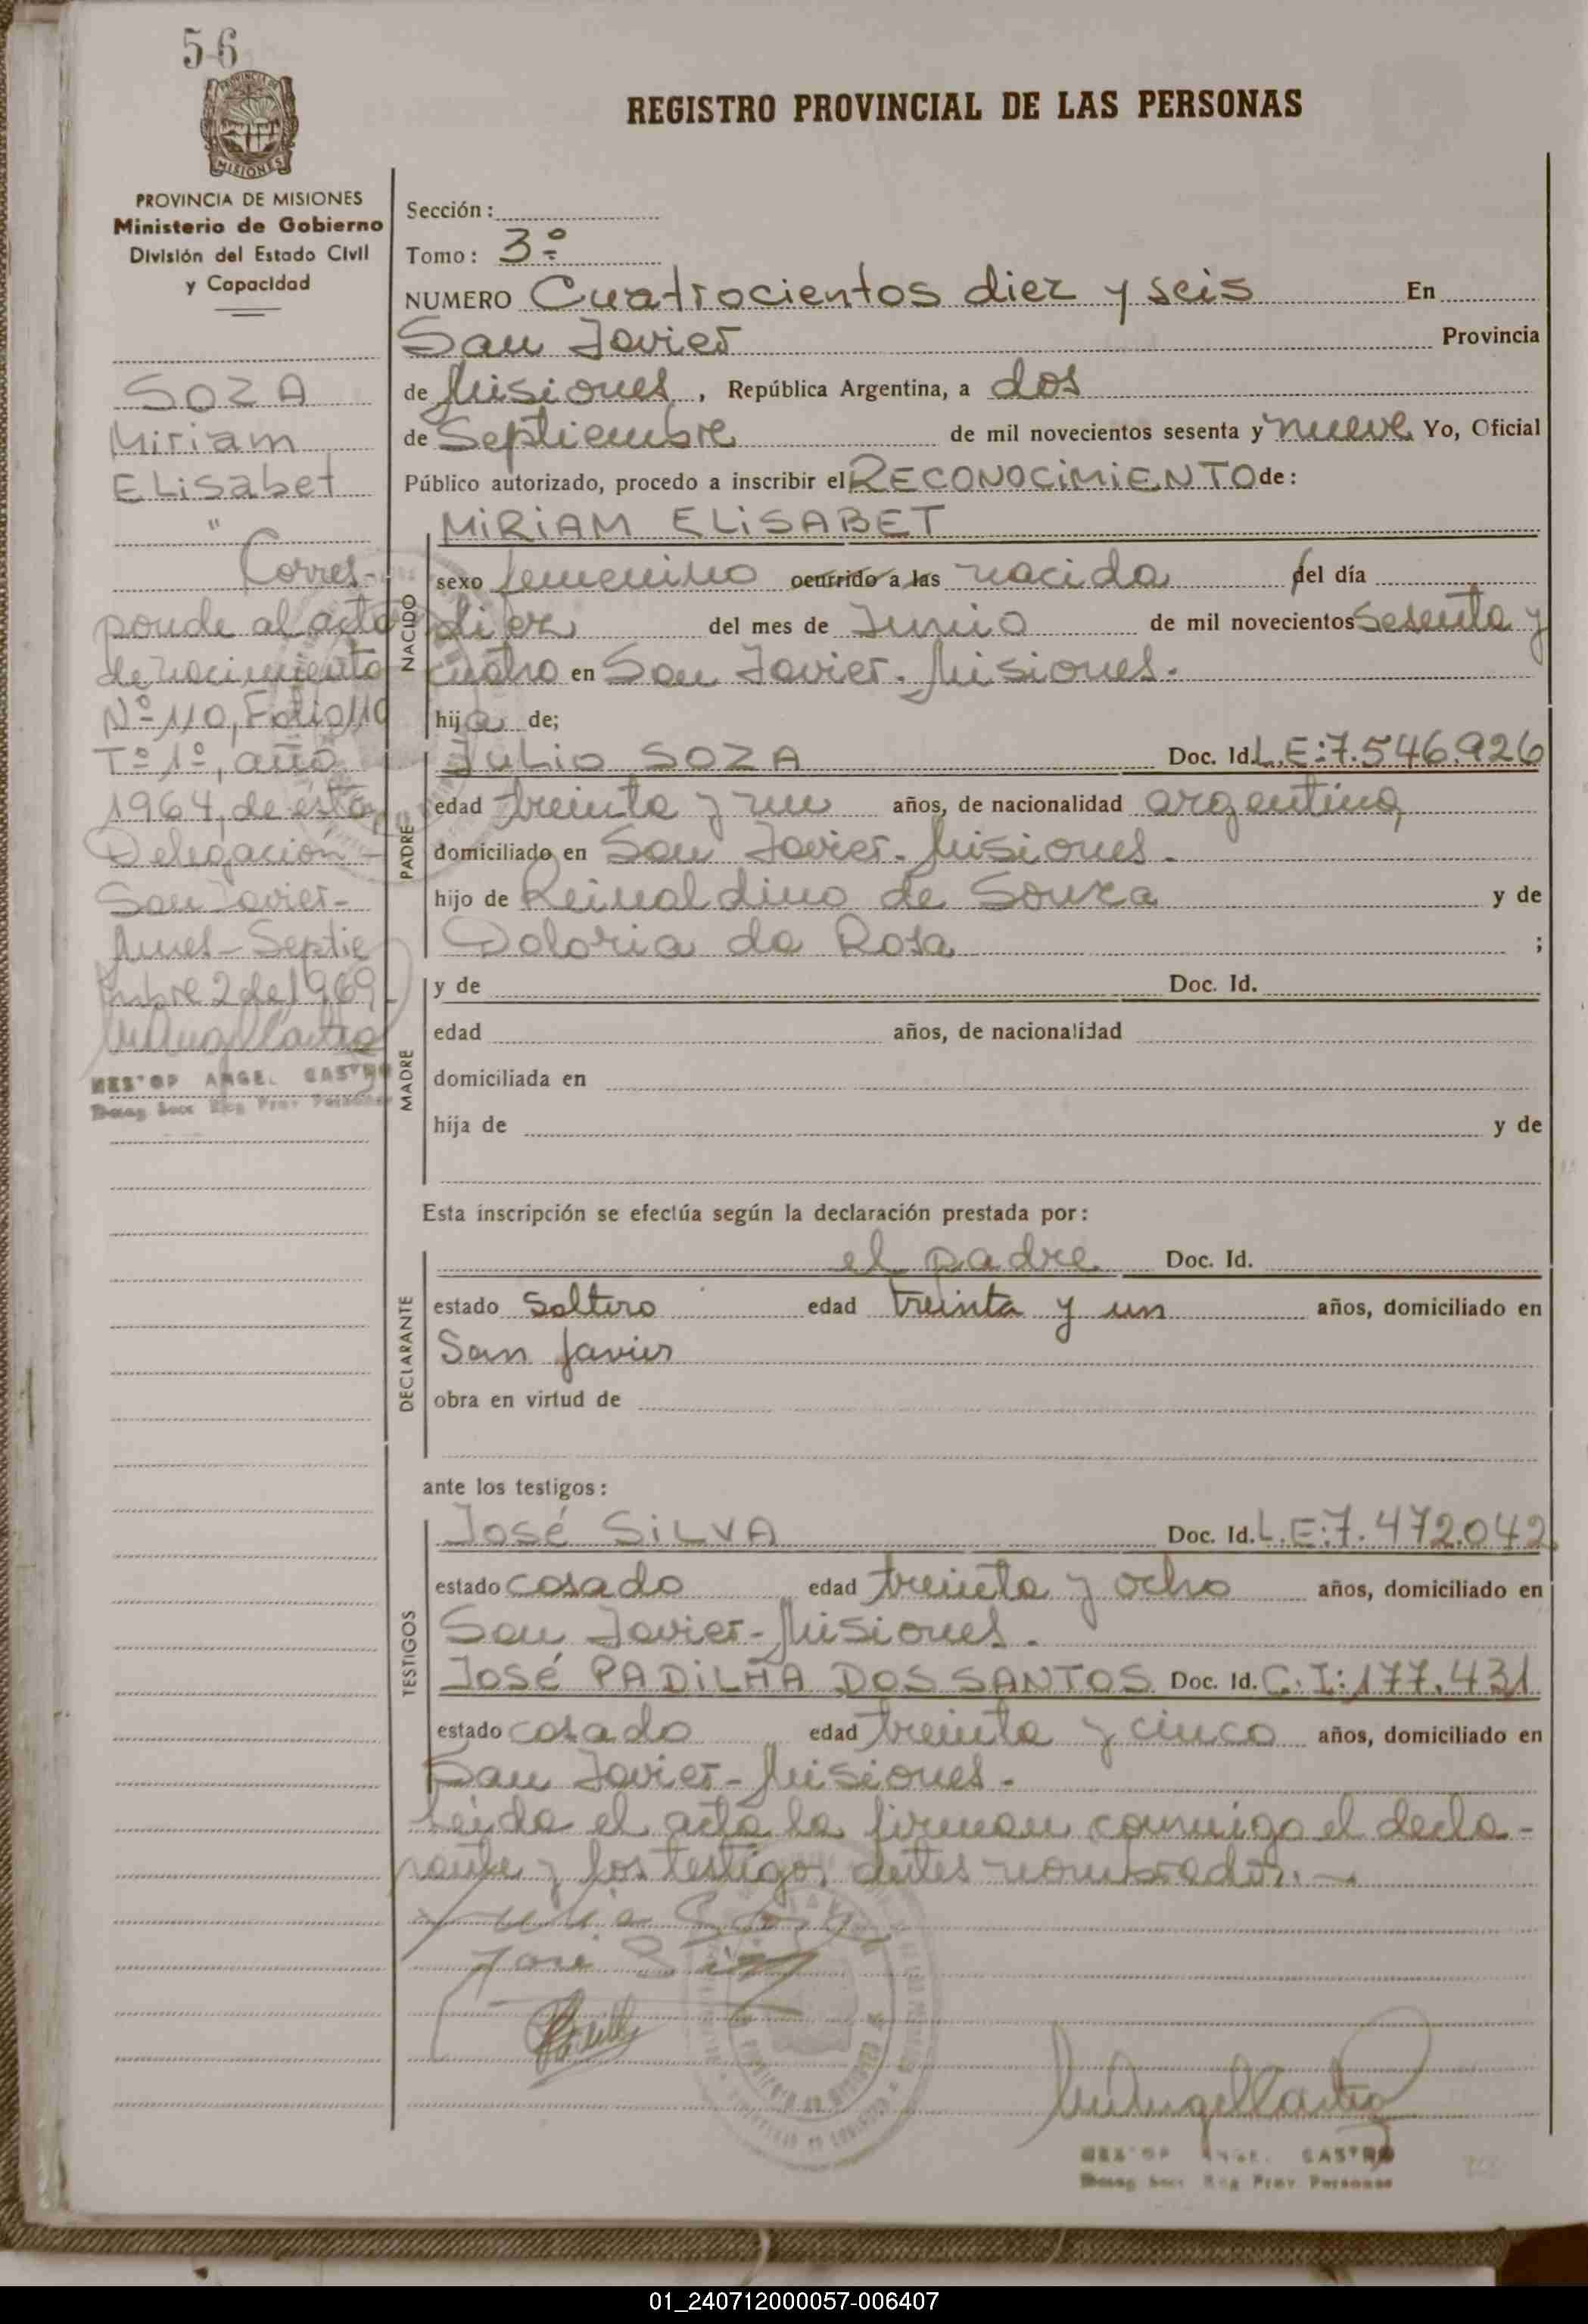 56
PROVINCIA DE
MISIONES
REGISTRO PROVINCIAL DE LAS PERSONAS
PROVINCIA DE MISIONES
Ministerio de Gobierno
División del Estado Civil
y Capacidad
SOZA
Miriam
ELisabet
"
Corres-
ponde al acta
de nacimiento
Nº 110, Folio 110
Tº 1º, año
1964, de ésta
Delegación-
San Javier-
Mnes-Septie
mbre 2 de 1969
NESTOR ANGEL CASTRO
Encarg Secc Reg Prov Personas
Sección:
Tomo: 3º
NUMERO Cuatrocientos diez y seis En
San Javier Provincia
de Misiones, República Argentina, a dos
de Septiembre de mil novecientos sesenta y nueve Yo, Oficial
Público autorizado, procedo a inscribir el RECONOCIMIENTO de:
MIRIAM ELISABET
NACIDO
sexo femenino ocurrido a las nacida del día
diez del mes de Junio de mil novecientos sesenta y
cuatro en San Javier. Misiones.
hija de;
PADRE
JULIO SOZA Doc. Id. L.E:7.546.926
edad treinta y un años, de nacionalidad argentina,
domiciliado en San Javier. Misiones.
hijo de Reinaldino de Souza y de
Doloria da Rosa ;
MADRE
y de Doc. Id.
edad años, de nacionalidad
domiciliada en
hija de y de
Esta inscripción se efectúa según la declaración prestada por:
DECLARANTE
el padre Doc. Id.
estado Soltero edad treinta y un años, domiciliado en
San Javier
obra en virtud de
ante los testigos:
TESTIGOS
José SILVA Doc. Id. L.E:7.472.042
estado casado edad treinta y ocho años, domiciliado en
San Javier-Misiones.
José PADILHA DOS SANTOS Doc. Id. C.I:177.431
estado casado edad treinta y cinco años, domiciliado en
San Javier-Misiones.
Leída el acta la firman conmigo el decla-
rante y los testigos antes nombrados.-
Julio Soza
José Silva
NESTOR ANGEL CASTRO
Encarg Secc Reg Prov Personas
01_240712000057-006407